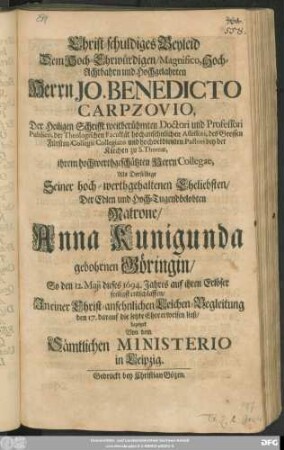 Christ-schuldiges Beyleid
Dem Hoch-Ehrwürdigen/ Magnifico, Hoch-
Achtbahrn und Hochgelahrten
Herrn JO. BENEDICTO
CARPZOVIO,
Der Heiligen Schrifft weitberühmten Doctori und Professori
Publico, der Theologischen Facultät hochansehnlichen Assessori, des Grossen
Fürsten-Collegii Collegiato und hochverdienten Pastori bey der
Kirchen zu S. Thomæ,
ihrem hochwerthgeschätzten Herrn Collegae,
Als Derselbige
Seiner hoch-werthgehaltenen Eheliebsten/
Der Edlen und Hoch-Tugendbelobten
Matrone/
Anna Kunigunda
gebohrnen Göringin/
So den 12. Maji dieses 1694. Jahrs auf ihren Erlöser
seeligst entschlaffen/
In einer Christ-ansehnlichen Leichen-Begleitung
den 17. darauf die letzte Ehre erweisen ließ/
bezeuget
Von dem
Sämtlichen MINISTERIO
in Leipzig.
Gedruckt bey Christian Götzen.